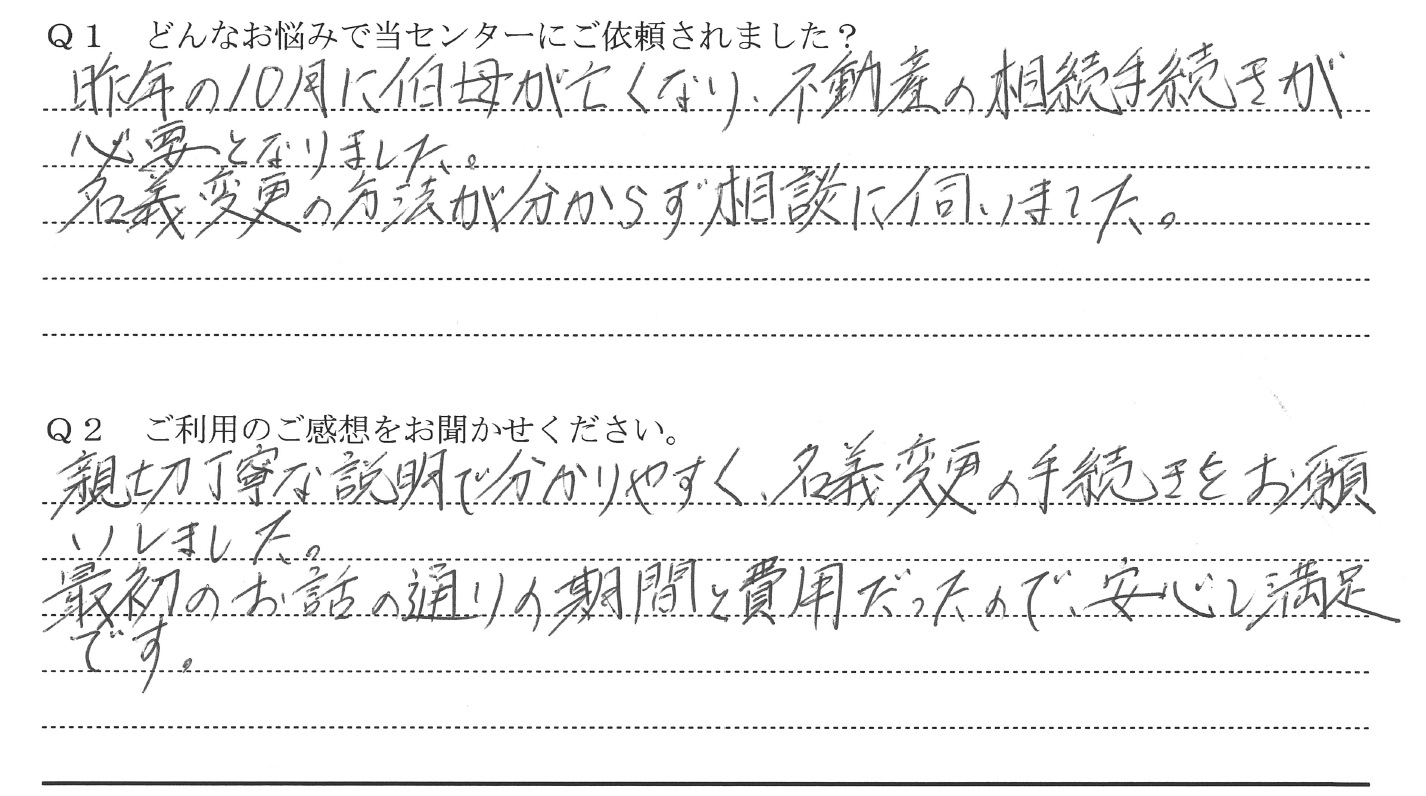 Q1 どんなお悩みで当センターにご依頼されました?
昨年の10月に伯母が亡くなり、不動産の相続手続きが
必要となりました。
名義変更の方法が分からず相談に伺いました。
Q2 ご利用のご感想をお聞かせください。
親切丁寧な説明で分かりやすく、名義変更の手続きをお願
いしました。
最初のお話の通りの期間と費用だったので、安心し満足
です。